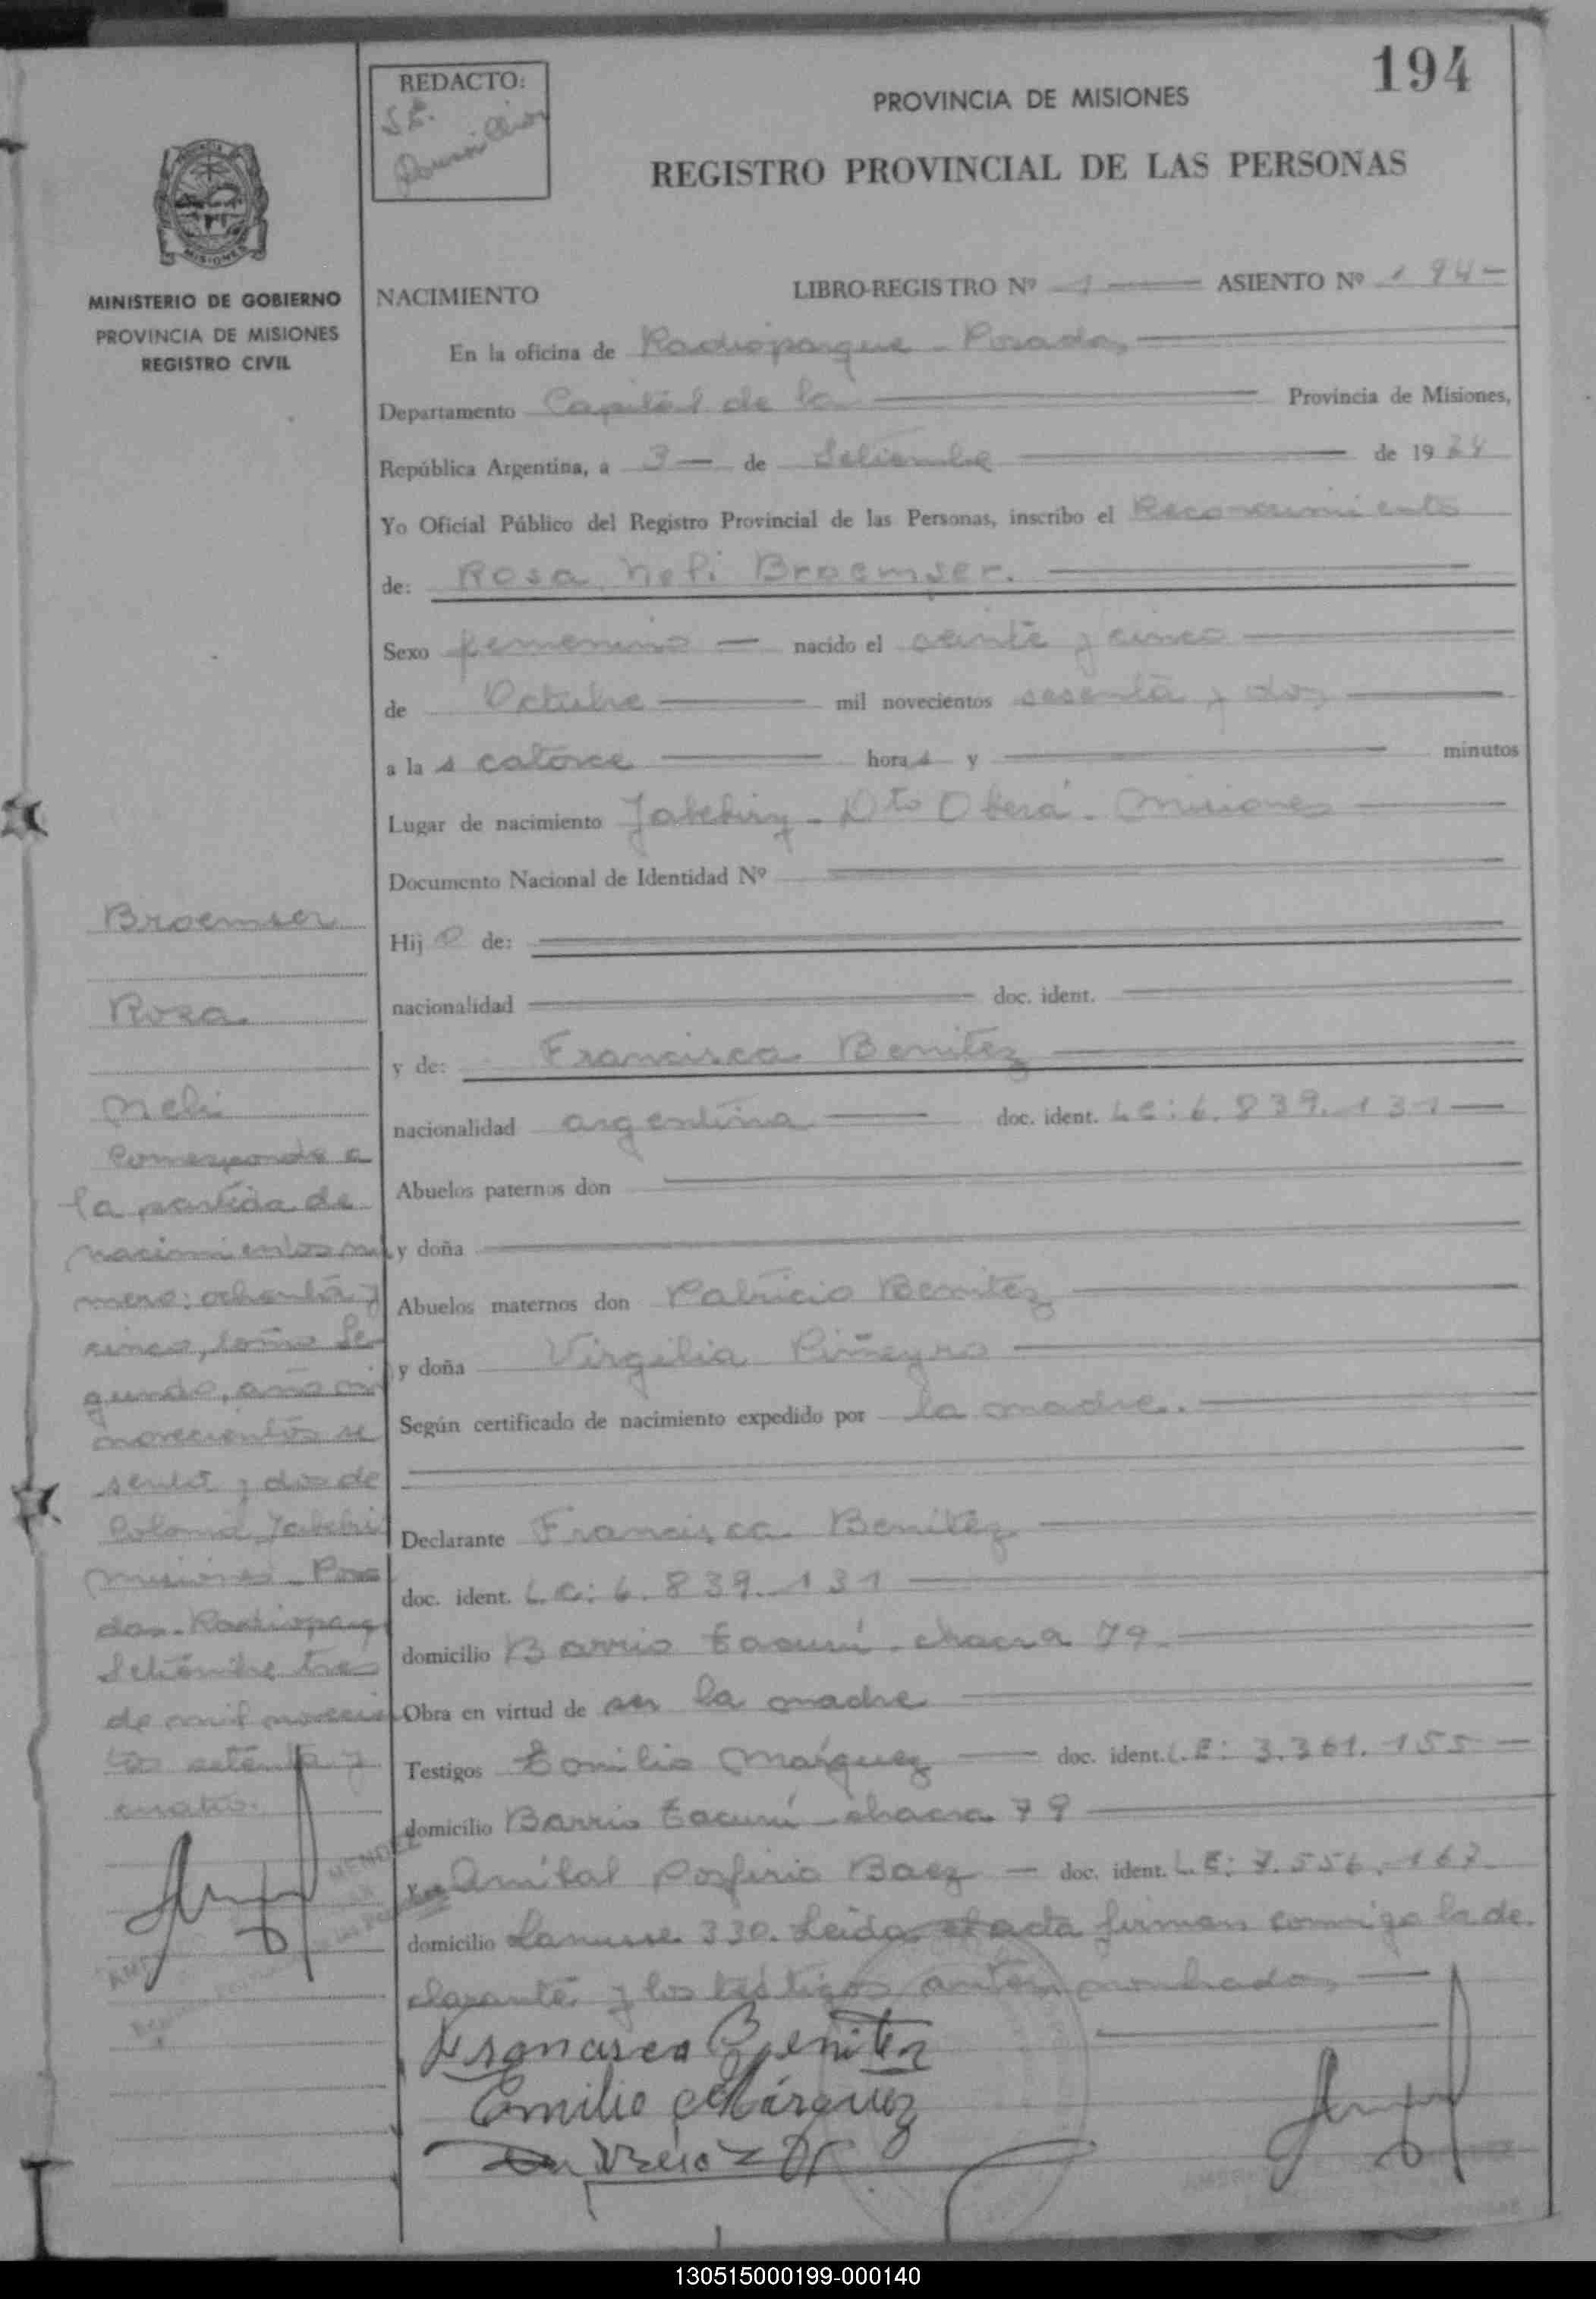 194
REDACTO:
S.E.
PROVINCIA DE MISIONES
REGISTRO PROVINCIAL DE LAS PERSONAS
MISIONES
MINISTERIO DE GOBIERNO
PROVINCIA DE MISIONES
REGISTRO CIVIL
NACIMIENTO LIBRO-REGISTRO Nº 1 ASIENTO Nº 194-
En la oficina de Radioparque - Posadas
Departamento Capital de la Provincia de Misiones,
República Argentina, a 3 de Setiembre de 1974
Yo Oficial Público del Registro Provincial de las Personas, inscribo el Reconocimiento
de: Rosa Neli Broemser.
Sexo femenino nacido el veinte y cinco
de Octubre mil novecientos sesenta y dos
a las catorce horas y minutos
Lugar de nacimiento Jabebiry - Dto Oberá - Misiones
Documento Nacional de Identidad Nº
Hija de:
nacionalidad doc. ident.
y de: Francisca Benitez
nacionalidad argentina doc. ident. LC: 6.839.131
Abuelos paternos don
y doña
Abuelos maternos don Patricio Benitez
y doña Virgilia Piñeyro
Según certificado de nacimiento expedido por la madre.
Declarante Francisca Benítez
doc. ident. L.C: 6.839.131
domicilio Barrio tacurú - chacra 79
Obra en virtud de ser la madre
Testigos Emilio Márquez doc. ident. L.E: 3.361.155
domicilio Barrio tacurú chacra 79
Anibal Porfirio Baez doc. ident. L.E: 7.556.167
domicilio Lanusse 330. Leida el acta firman conmigo la de
clarante y los testigos antes nombrados
Francisca Benitez
Emilio Márquez
Broemser
Rosa
Neli
Corresponde a
la partida de
nacimientos nu
mero: ochenta y
cinco, tomo Se
gundo, año mil
novecientos se
senta y dos de
Colonia Jabebiri
Misiones - Posa
das - Radioparq
Setiembre tres
de mil novecien
tos setenta y
cuatro.
MENDEZ
130515000199-000140